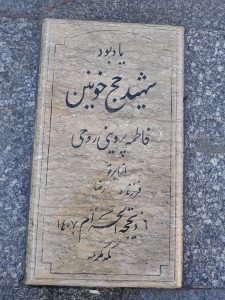 یادبود
شهید حج خونین
فاطمه پروینی روحی
از ابرقو
فرزند رضا
۶ ذیحجه الحرام ۱۴۰۷
مکه مکرمه